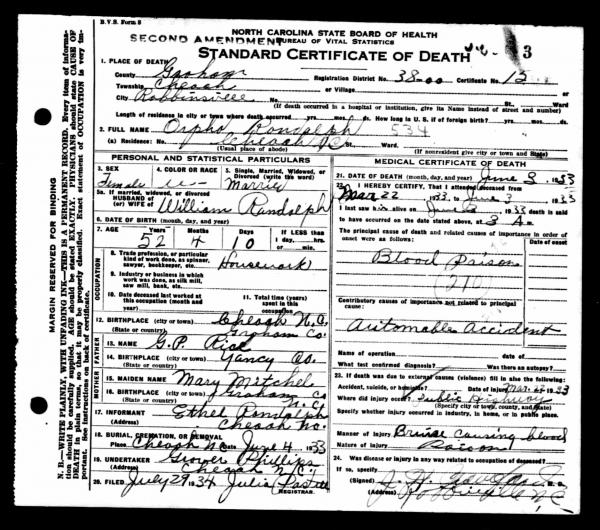 B.V.S. Form 8
NORTH CAROLINA STATE BOARD OF HEALTH
SECOND AMENDMENT BUREAU OF VITAL STATISTICS
STANDARD CERTIFICATE OF DEATH 3
1. PLACE OF DEATH
County Graham Registration District No. 38-00 Certificate No. 15
Township Cheoah or Village
City Robbinsville No. St. Ward
(If death occurred in a hospital or institution, give its Name instead of street and number)
Length of residence in city or town where death occurred yrs. mos. ds. How long in U. S. if of foreign birth? yrs. mos. ds.
2. FULL NAME Orpha Randolph 534
(a) Residence: No. Cheoah N.C. St. Ward
(Usual place of abode) (If nonresident give city or town and State)
PERSONAL AND STATISTICAL PARTICULARS
3. SEX 4. COLOR OR RACE 5. Single, Married, Widowed, or Divorced (write the word)
Female Married
5a. If married, widowed, or divorced
HUSBAND of
(or) WIFE of William Randolph
6. DATE OF BIRTH (month, day, and year)
7. AGE Years Months Days If LESS than
52 4 10 1 day, hrs.
or min.
OCCUPATION
8. Trade, profession, or particular kind of work done, as spinner, sawyer, bookkeeper, etc. Housework
9. Industry or business in which work was done, as silk mill, saw mill, bank, etc.
10. Date deceased last worked at this occupation (month and year) 11. Total time (years) spent in this occupation
12. BIRTHPLACE (city or town) Cheoah N.C.
(State or country) Graham Co.
FATHER
13. NAME G.P. Rice
14. BIRTHPLACE (city or town) Yancy Co.
(State or country)
MOTHER
15. MAIDEN NAME Mary Mitchel
16. BIRTHPLACE (city or town) Graham Co
(State or country) N.C.
17. INFORMANT Ethel Randolph
(Address) Cheoah N.C.
18. BURIAL, CREMATION, OR REMOVAL
Place Cheoah N.C. Date June 4 1933
19. UNDERTAKER Grover Phillips
(Address) Cheoah N.C.
20. FILED July 29 1934 Julia
REGISTRAR.
MEDICAL CERTIFICATE OF DEATH
21. DATE OF DEATH (month, day, and year) June 3 1933
22. I HEREBY CERTIFY, That I attended deceased from
Mar 22 1933, to June 3 1933
I last saw h alive on June 1933 death is said
to have occurred on the date stated above, at 3 m.
The principal cause of death and related causes of importance in order of onset were as follows:
Date of onset
Blood Poison
210
Contributory causes of importance not related to principal cause:
Automable Accident
Name of operation Date of
What test confirmed diagnosis? Was there an autopsy?
23. If death was due to external causes (violence) fill in also the following:
Accident, suicide, or homicide? Date of injury Mar 1933
Where did injury occur? Public Highway
(Specify city or town, county, and State)
Specify whether injury occurred in industry, in home, or in public place.
Manner of injury Bruise causing blood
Nature of injury Poison
24. Was disease or injury in any way related to occupation of deceased?
If so, specify
(Signed) M.D.
(Address) Robbinsville N.C.
MARGIN RESERVED FOR BINDING
N. B.—WRITE PLAINLY, WITH UNFADING INK—THIS IS A PERMANENT RECORD. Every item of information should be carefully supplied. AGE should be stated EXACTLY. PHYSICIANS should state CAUSE OF DEATH in plain terms, so that it may be properly classified. Exact statement of OCCUPATION is very important. See instructions on back of certificate.